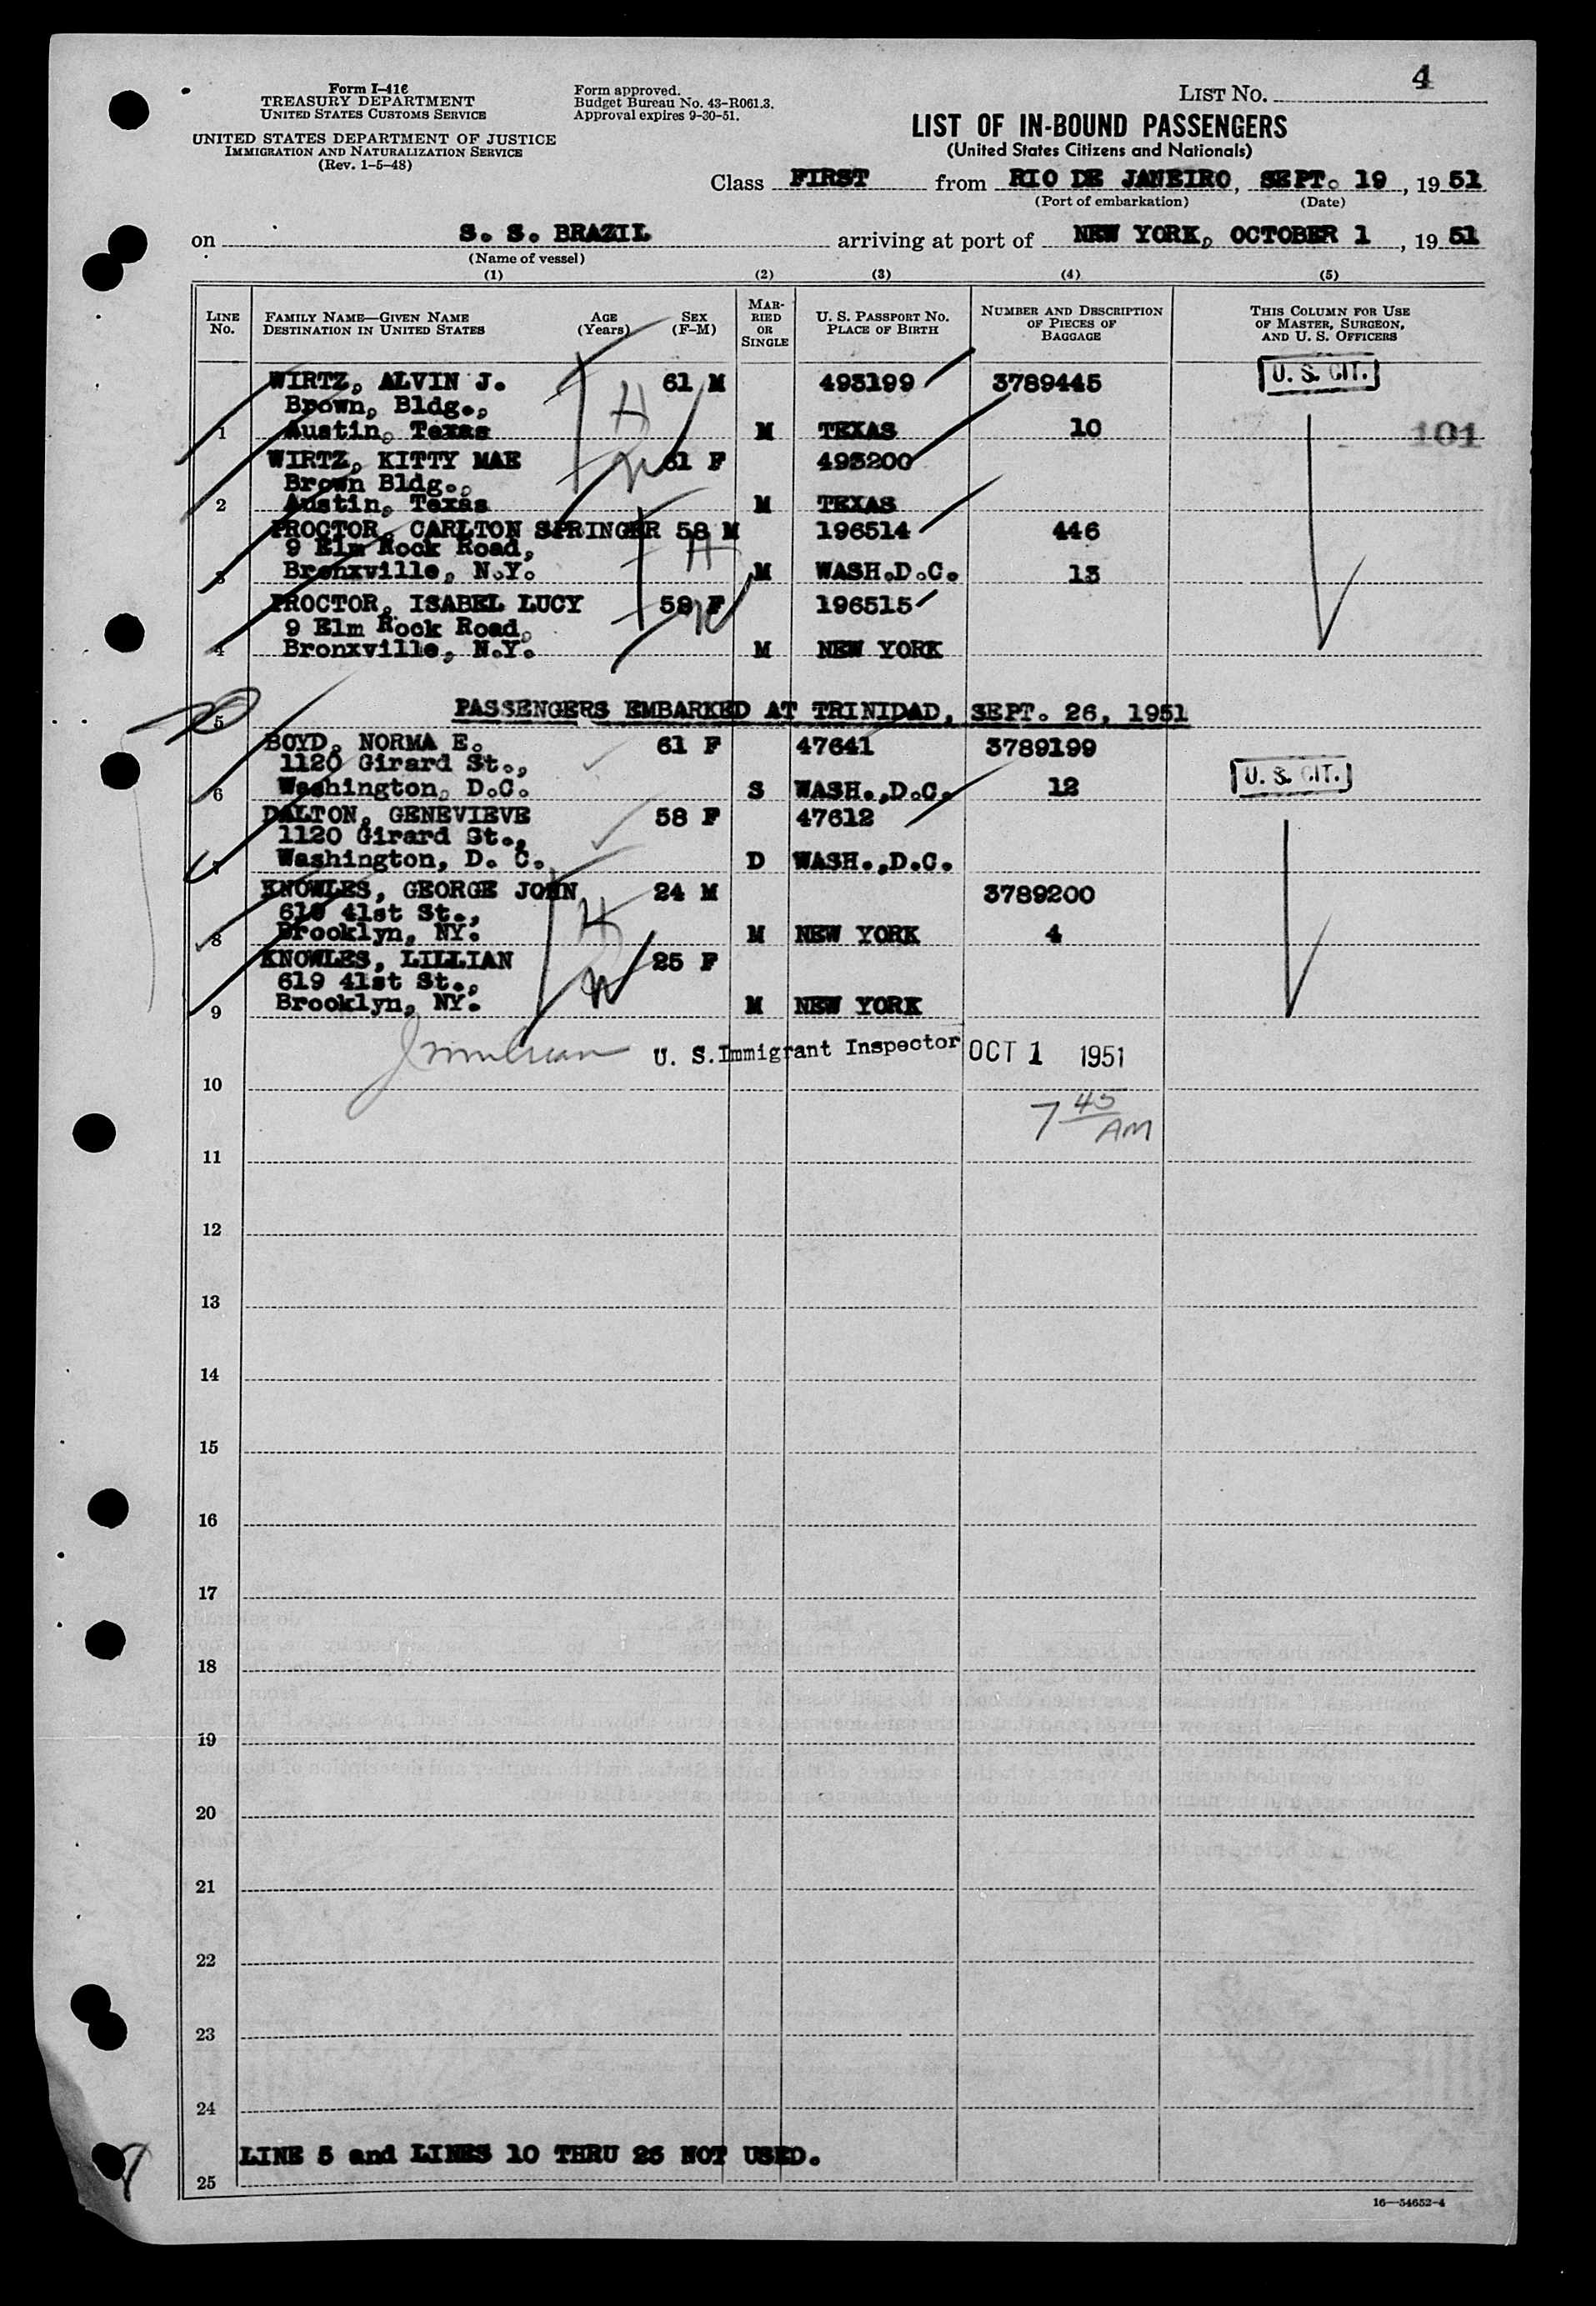 Form I-416
TREASURY DEPARTMENT
UNITED STATES CUSTOMS SERVICE
UNITED STATES DEPARTMENT OF JUSTICE
IMMIGRATION AND NATURALIZATION SERVICE
(Rev. 1-5-48)
Form approved.
Budget Bureau No. 43-R061.3.
Approval expires 9-30-51.
LIST No. 4
LIST OF IN-BOUND PASSENGERS
(United States Citizens and Nationals)
Class FIRST from RIO DE JANEIRO, SEPT. 19, 1951
(Port of embarkation) (Date)
on S. S. BRAZIL arriving at port of NEW YORK, OCTOBER 1, 1951
(Name of vessel)
(1) (2) (3) (4) (5)
LINE No. FAMILY NAME—GIVEN NAME DESTINATION IN UNITED STATES AGE (Years) SEX (F-M) MARRIED OR SINGLE U. S. PASSPORT No. PLACE OF BIRTH NUMBER AND DESCRIPTION OF PIECES OF BAGGAGE THIS COLUMN FOR USE OF MASTER, SURGEON, AND U. S. OFFICERS
WIRTZ, ALVIN J. 61 M 493199 3789445 U. S. CIT.
Brown, Bldg.,
1 Austin, Texas M TEXAS 10 101
WIRTZ, KITTY MAE 61 F 493200
Brown Bldg.,
2 Austin, Texas M TEXAS
PROCTOR, CARLTON SPRINGER 58 M 196514 446
9 Elm Rock Road,
3 Bronxville, N.Y. M WASH.D.C. 13
PROCTOR, ISABEL LUCY 58 F 196515
9 Elm Rock Road,
4 Bronxville, N.Y. M NEW YORK
5 PASSENGERS EMBARKED AT TRINIDAD, SEPT. 26, 1951
BOYD, NORMA E. 61 F 47641 3789199
1120 Girard St.,
6 Washington, D.C. S WASH.,D.C. 12 U. S. CIT.
DALTON, GENEVIEVE 58 F 47612
1120 Girard St.,
7 Washington, D. C. D WASH.,D.C.
KNOWLES, GEORGE JOHN 24 M 3789200
619 41st St.,
8 Brooklyn, NY. M NEW YORK 4
KNOWLES, LILLIAN 25 F
619 41st St.,
9 Brooklyn, NY. M NEW YORK
U. S. Immigrant Inspector OCT 1 1951
10
7 45 AM
11
12
13
14
15
16
17
18
19
20
21
22
23
24
LINE 5 and LINES 10 THRU 25 NOT USED.
25
16—54652-4